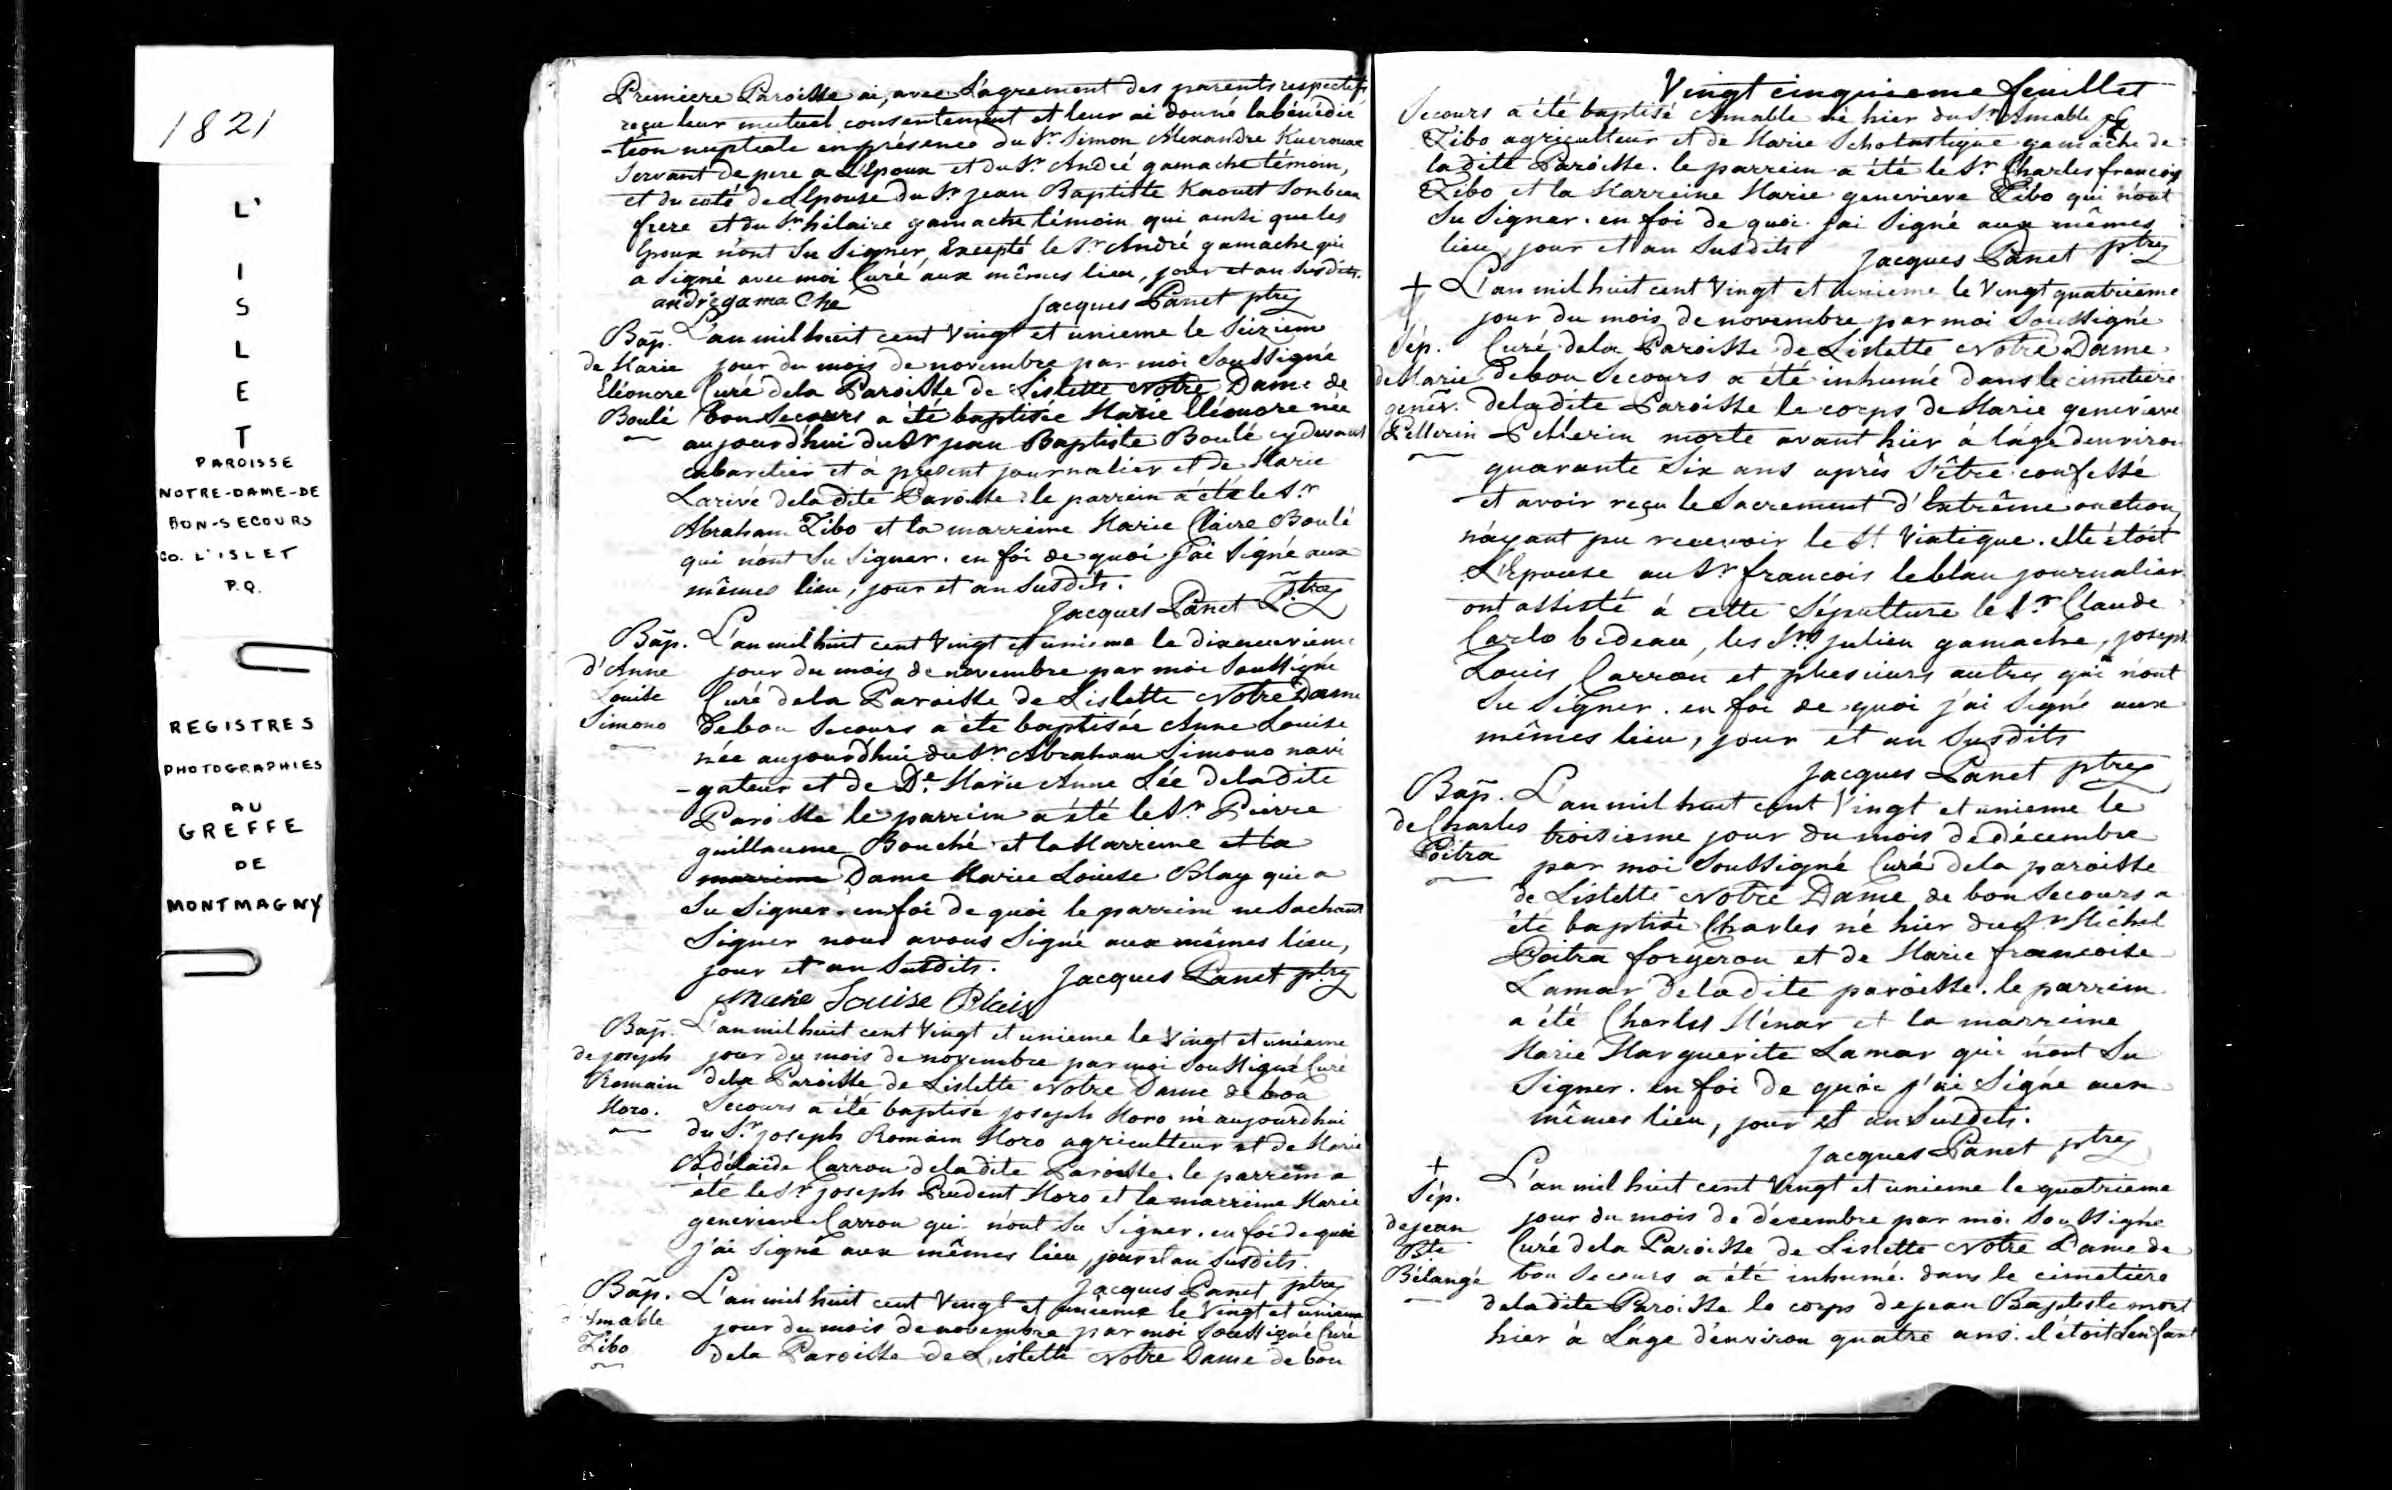 1821
L'
I
S
L
E
T
PAROISSE
NOTRE-DAME-DE
BON-SECOURS
CO. L'ISLET
P.Q.
REGISTRES
PHOTOGRAPHIES
AU
GREFFE
DE
MONTMAGNY
Premiere Paroisse ai, avec l'agrement des parents respectifs
reçu leur mutuel consentement et leur ai donné la bénédic
-tion nuptiale en présence du Sr. Simon Alexandre Kuerouac
servant de pere a L'Epoux et du Sr. André gamache témoin,
et du coté de L'Epouse du Sr jean Baptiste Kaouet son beau
frere et du Sr. hilaire gamache témoin qui ainsi que les
Epoux n'ont su signer, Excepté le Sr. André gamache qui
a signé avec moi Curé aux mêmes lieu, jour et an susdits.
andré gama Che
Jacques Panet ptre
Bap. L'an mil huit cent Vingt et unieme le Seizieme
de Marie jour du mois de novembre par moi soussigné
Eléonore Curé dela Paroisse de Lislette Notre Dame de
Boulé bon Secours a été baptisée Marie Eléonore née
aujourdhui du Sr jean Baptiste Boulé cy devant
cabaretier et à present journalier et de Marie
Larivé deladite Paroisse. le parrein a été le Sr
Abraham Zibo et la marreine Marie Claire Boulé
qui n'ont su signer. en foi de quoi j'ai signé aux
mêmes lieu, jour et an susdits.
Jacques Panet Ptre
Bap. L'an mil huit cent Vingt et unieme le dixneuvieme
d'Anne jour du mois de novembre par moi soussigné
Louise Curé dela Paroisse de Lislette Notre Dame
Simono debon Secours a été baptisée Anne Louise
née aujourdhui du Sr. Abraham Simono navi
-gateur et de De. Marie Anne Lée deladite
Paroisse le parrein a été le Sr. Pierre
guillaume Bouché et la Marreine et la
marreine Dame Marie Louise Blay qui a
su signer. en foi de quoi le parrein ne sachant
signer nous avons signé aux mêmes lieu,
jour et an susdits. Jacques Panet ptre
Marie Louise Blais
Bap. L'an mil huit cent Vingt et unieme le Vingt et unieme
de joseph jour du mois de novembre par moi soussigné Curé
Romain dela Paroisse de Lislette Notre Dame de bon
Moro. Secours a été baptisé joseph Moro né aujourdhui
du Sr. joseph Romain Moro agriculteur et de Marie
Adélaide Carron deladite Paroisse. le parrein a
été le Sr joseph Prudent Moro et la marreine Marie
genevieve Carron qui n'ont su signer. en foi de quoi
j'ai signé aux mêmes lieu, jour et an susdits.
Jacques Panet ptre
Bap. L'an mil huit cent Vingt et unieme le Vingt et unieme
d'Amable jour du mois de novembre par moi soussigné Curé
Zibo dela Paroisse de Lislette Notre Dame de bon
Vingt cinquieme feuillet
Secours a été baptisé Amable né hier du Sr Amable
Zibo agriculteur et de Marie Scholastique gamache de
ladite Paroisse. le parrein a été le Sr. Charles francois
Zibo et la Marreine Marie genevieve Zibo qui n'ont
su signer. en foi de quoi j'ai signé aux mêmes
lieu, jour et an susdits
Jacques Panet ptre
+ L'an mil huit cent Vingt et unieme le Vingt quatrieme
jour du mois de novembre par moi soussigné
Sép. Curé dela Paroisse de Lislette Notre Dame
de Marie debon Secours a été inhumé dans le cimetiere
genev. deladite Paroisse le corps de Marie genevieve
Pellerin Pellerin morte avant hier à l'âge d'environ
quarante six ans après s'être confessé
et avoir reçu le Sacrement d'Extrême onction
n'ayant pu recevoir le St. Viatique. elle étoit
L'Epouse au Sr francois leblau journalier
ont assisté à cette Sépulture le Sr. Claude
Carlo bédeau, les Srs. julien gamache, joseph
Louis Carron et plusieurs autres qui n'ont
su signer. en foi de quoi j'ai signé aux
mêmes lieu, jour et an susdits
Jacques Panet ptre
Bap. L'an mil huit cent Vingt et unieme le
de Charles troisieme jour du mois de décembre
Poitra par moi soussigné Curé dela paroisse
de Lislette Notre Dame de bon Secours a
été baptisé Charles né hier du Sr Michel
Poitra forgeron et de Marie francoise
Lamar deladite paroisse. le parrein
a été Charles Ménar et la marreine
Marie Marguerite Lamar qui n'ont su
signer. en foi de quoi j'ai signé aux
mêmes lieu, jour et an susdits.
Jacques Panet ptre
+
Sép. L'an mil huit cent Vingt et unieme le quatrieme
de jean jour du mois de décembre par moi soussigné
Bte Curé dela Paroisse de Lislette Notre Dame de
Bélangé bon Secours a été inhumé dans le cimetiere
deladite Paroisse le corps de jean Baptiste mort
hier à L'âge d'environ quatre ans. il étoit L'enfant